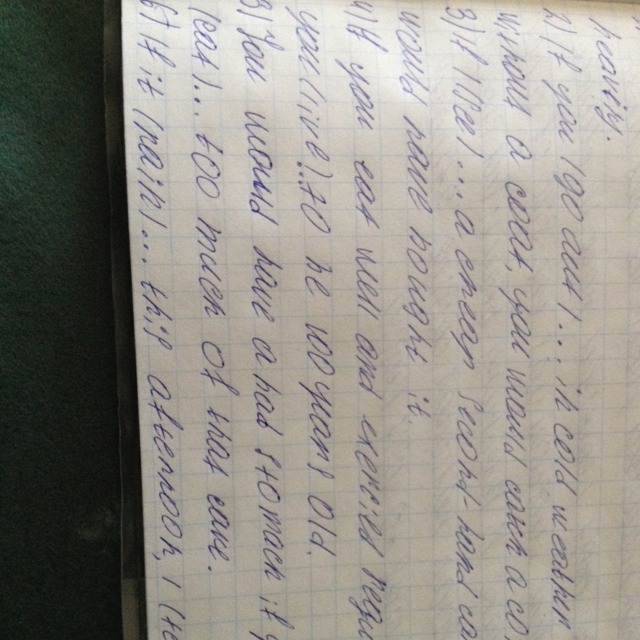 long.
If you (go out) ... cold
without a coat, you would catch a co
... a cheap second hand ca
would need to it
If you eat well and exercise regu
you (live) ... to be 100 years old.
you would have a bad stomach if y
(eat) ... too much of that cake.
If it (rain) ... this afternoon, I